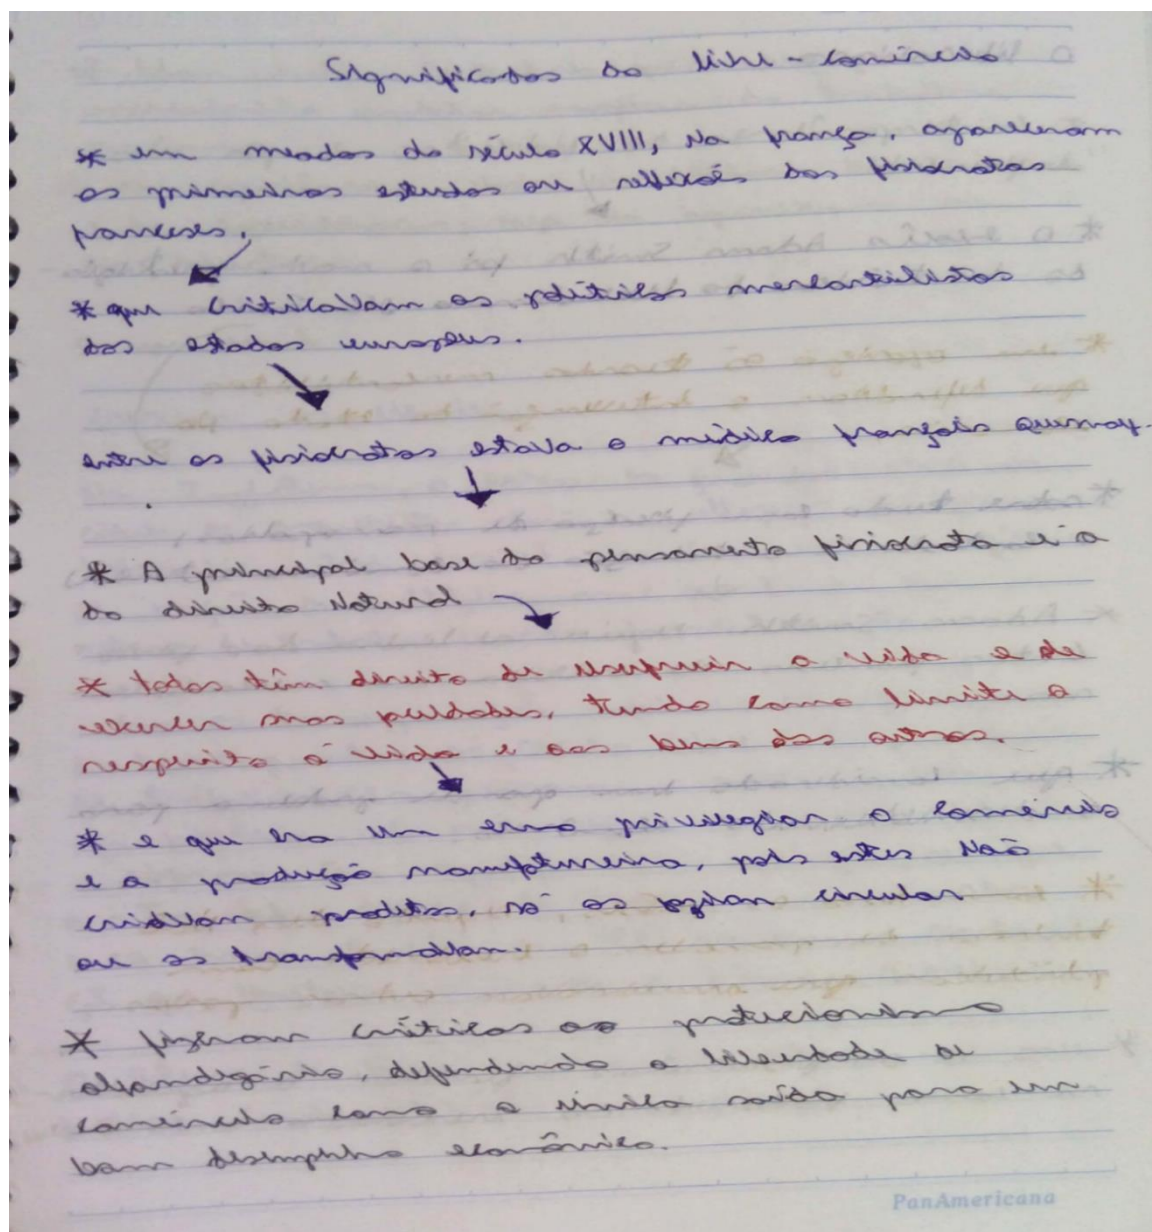 Significados do livre-comércio
* em meados do século XVIII, na frança, apareceram
os primeiros estudos ou reflexões dos fisiocratas
franceses.
* que criticavam as políticas mercantilistas
dos estados europeus.
entre os fisiocratas estava o médico françois Quesnay.
* A principal base do pensamento fisiocrata é a
do direito Natural
* todos têm direito de usufruir a vida e de
exercer suas faculdades, tendo como limite o
respeito à vida e aos bens dos outros.
* e que era um erro privilegiar o comércio
e a produção manufatureira, pois estes Não
criavam produtos, só os faziam circular
ou os transformavam.
* fizeram críticas ao protecionismo
alfandegário, defendendo a liberdade de
comércio como a única saída para um
bom desempenho econômico.
PanAmericana